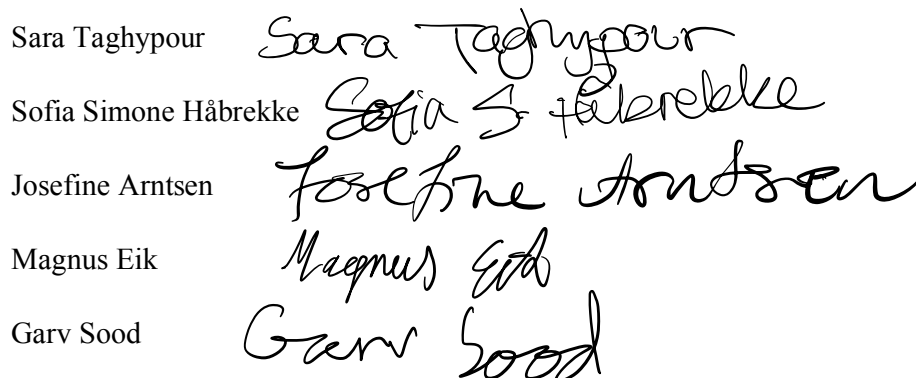 Sara Taghypour Sara Taghypour
Sofia Simone Håbrekke Sofia S. Håbrekke
Josefine Arntsen Josefine Arntsen
Magnus Eik Magnus Eik
Garv Sood Garv Sood